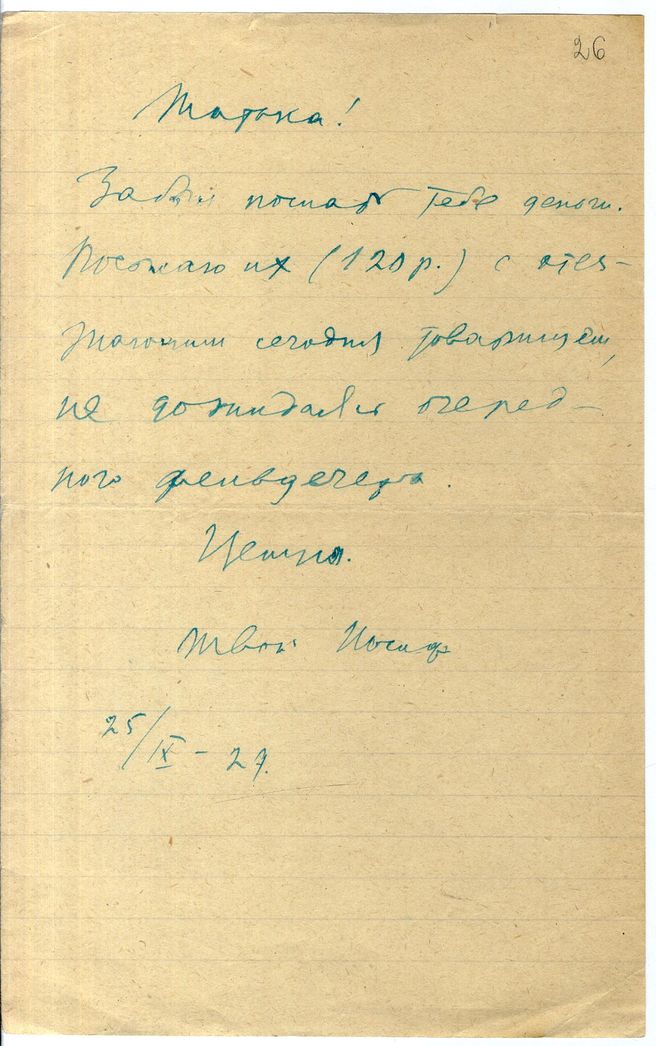 26
Татька!
Забыл послать тебе деньги.
Посылаю их (120 р.) с отез-
жающим сегодня товарищем,
не дожидаясь очеред-
ного фельдегеря.
Целую.
твой Иосиф
25/IX – 27.